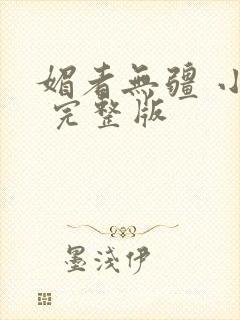 媚者無疆 小
完整版
墨淺伊